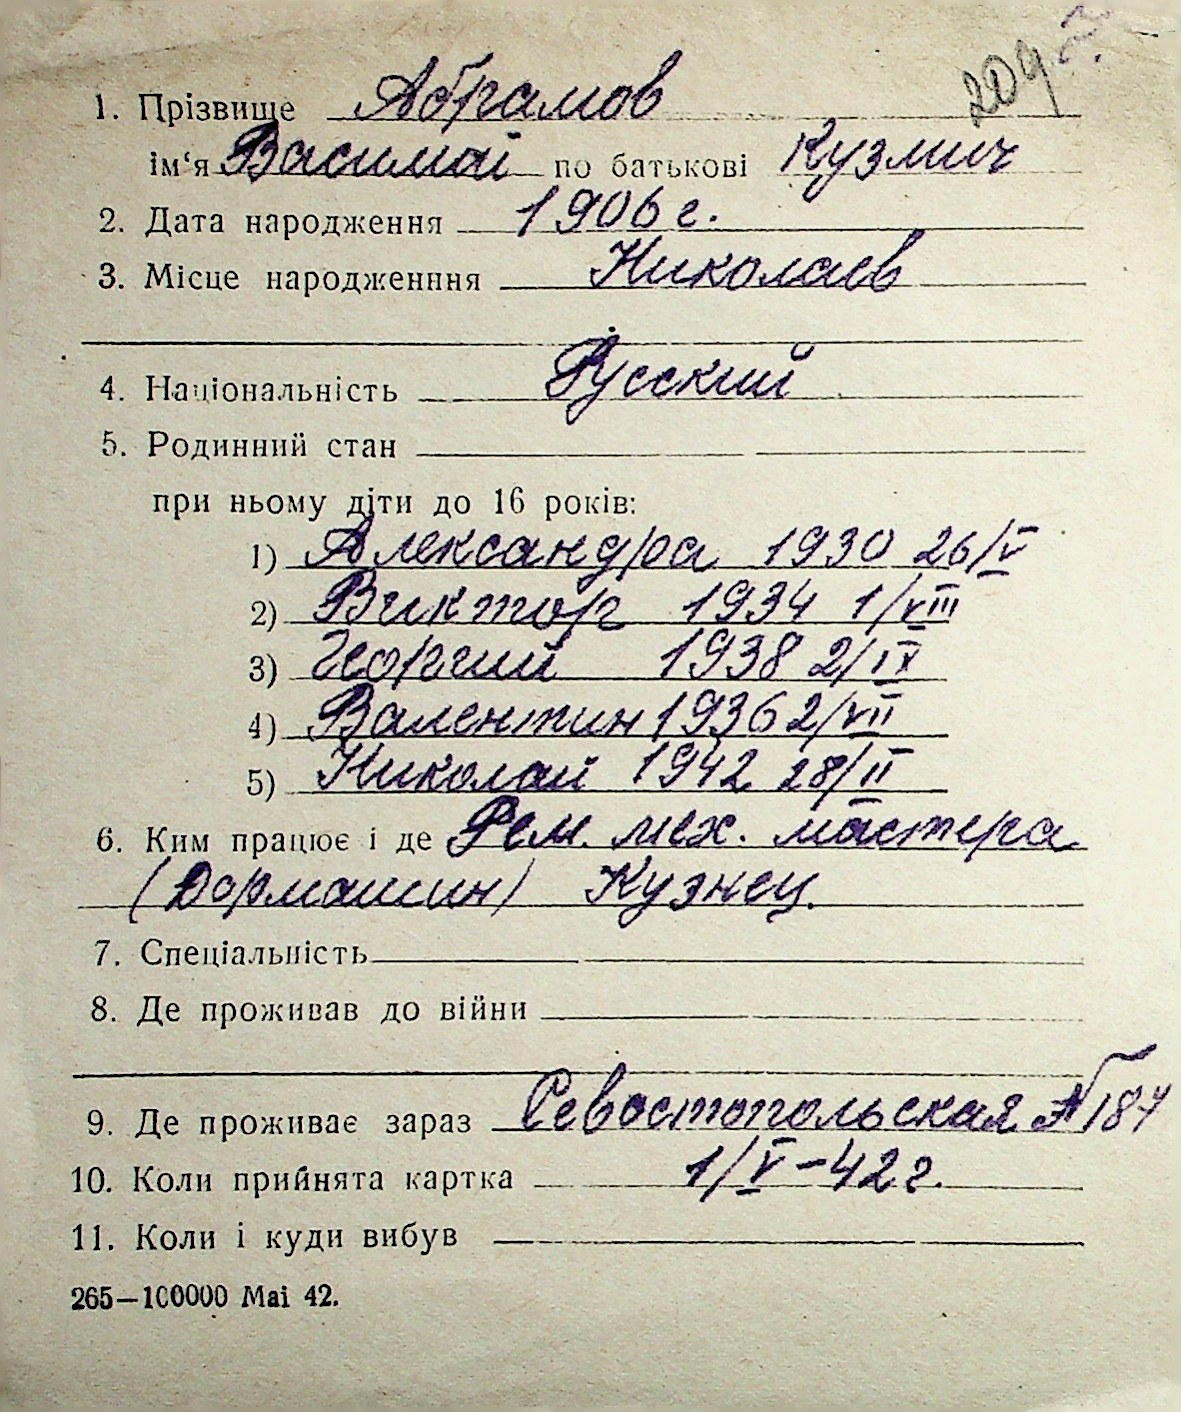 209
1. Прізвище Абрамов
ім‘я Василий по батькові Кузмич
2. Дата народження 1906 г.
3. Місце народженння Николаев
4. Національність Русский
5. Родинний стан
при ньому діти до 16 років:
1) Александра 1930 26/V
2) Виктор 1934 1/VIII
3) Георгий 1938 2/IX
4) Валентин 1936 2/VII
5) Николай 1942 28/II
6. Ким працює і де Рем. мех. мастера
(Дормашин) Кузнец.
7. Спеціальність
8. Де проживав до війни
9. Де проживає зараз Севостопольская № 187
10. Коли прийнята картка 1/V-42 г.
11. Коли і куди вибув
265—100000 Mai 42.